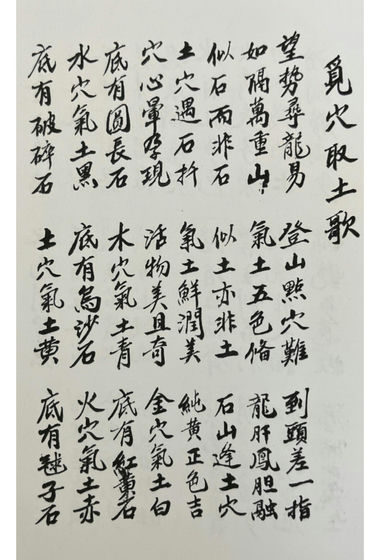 覓穴取土歌
望勢尋龍易 登山點穴難 到頭差一指
如隔萬重山 氣土五色俻 龍肝鳳胆融
似石而非石 似土亦非土 石山逢土穴
土穴遇石扦 氣土鮮潤美 純黃正色吉
穴心暈孕現 活物美且奇 金穴氣土白
底有圓長石 水穴氣土青 底有紅石
水穴氣土黑 底有烏沙石 火穴氣土赤
底有破碎石 土穴氣土黃 底有毬子石